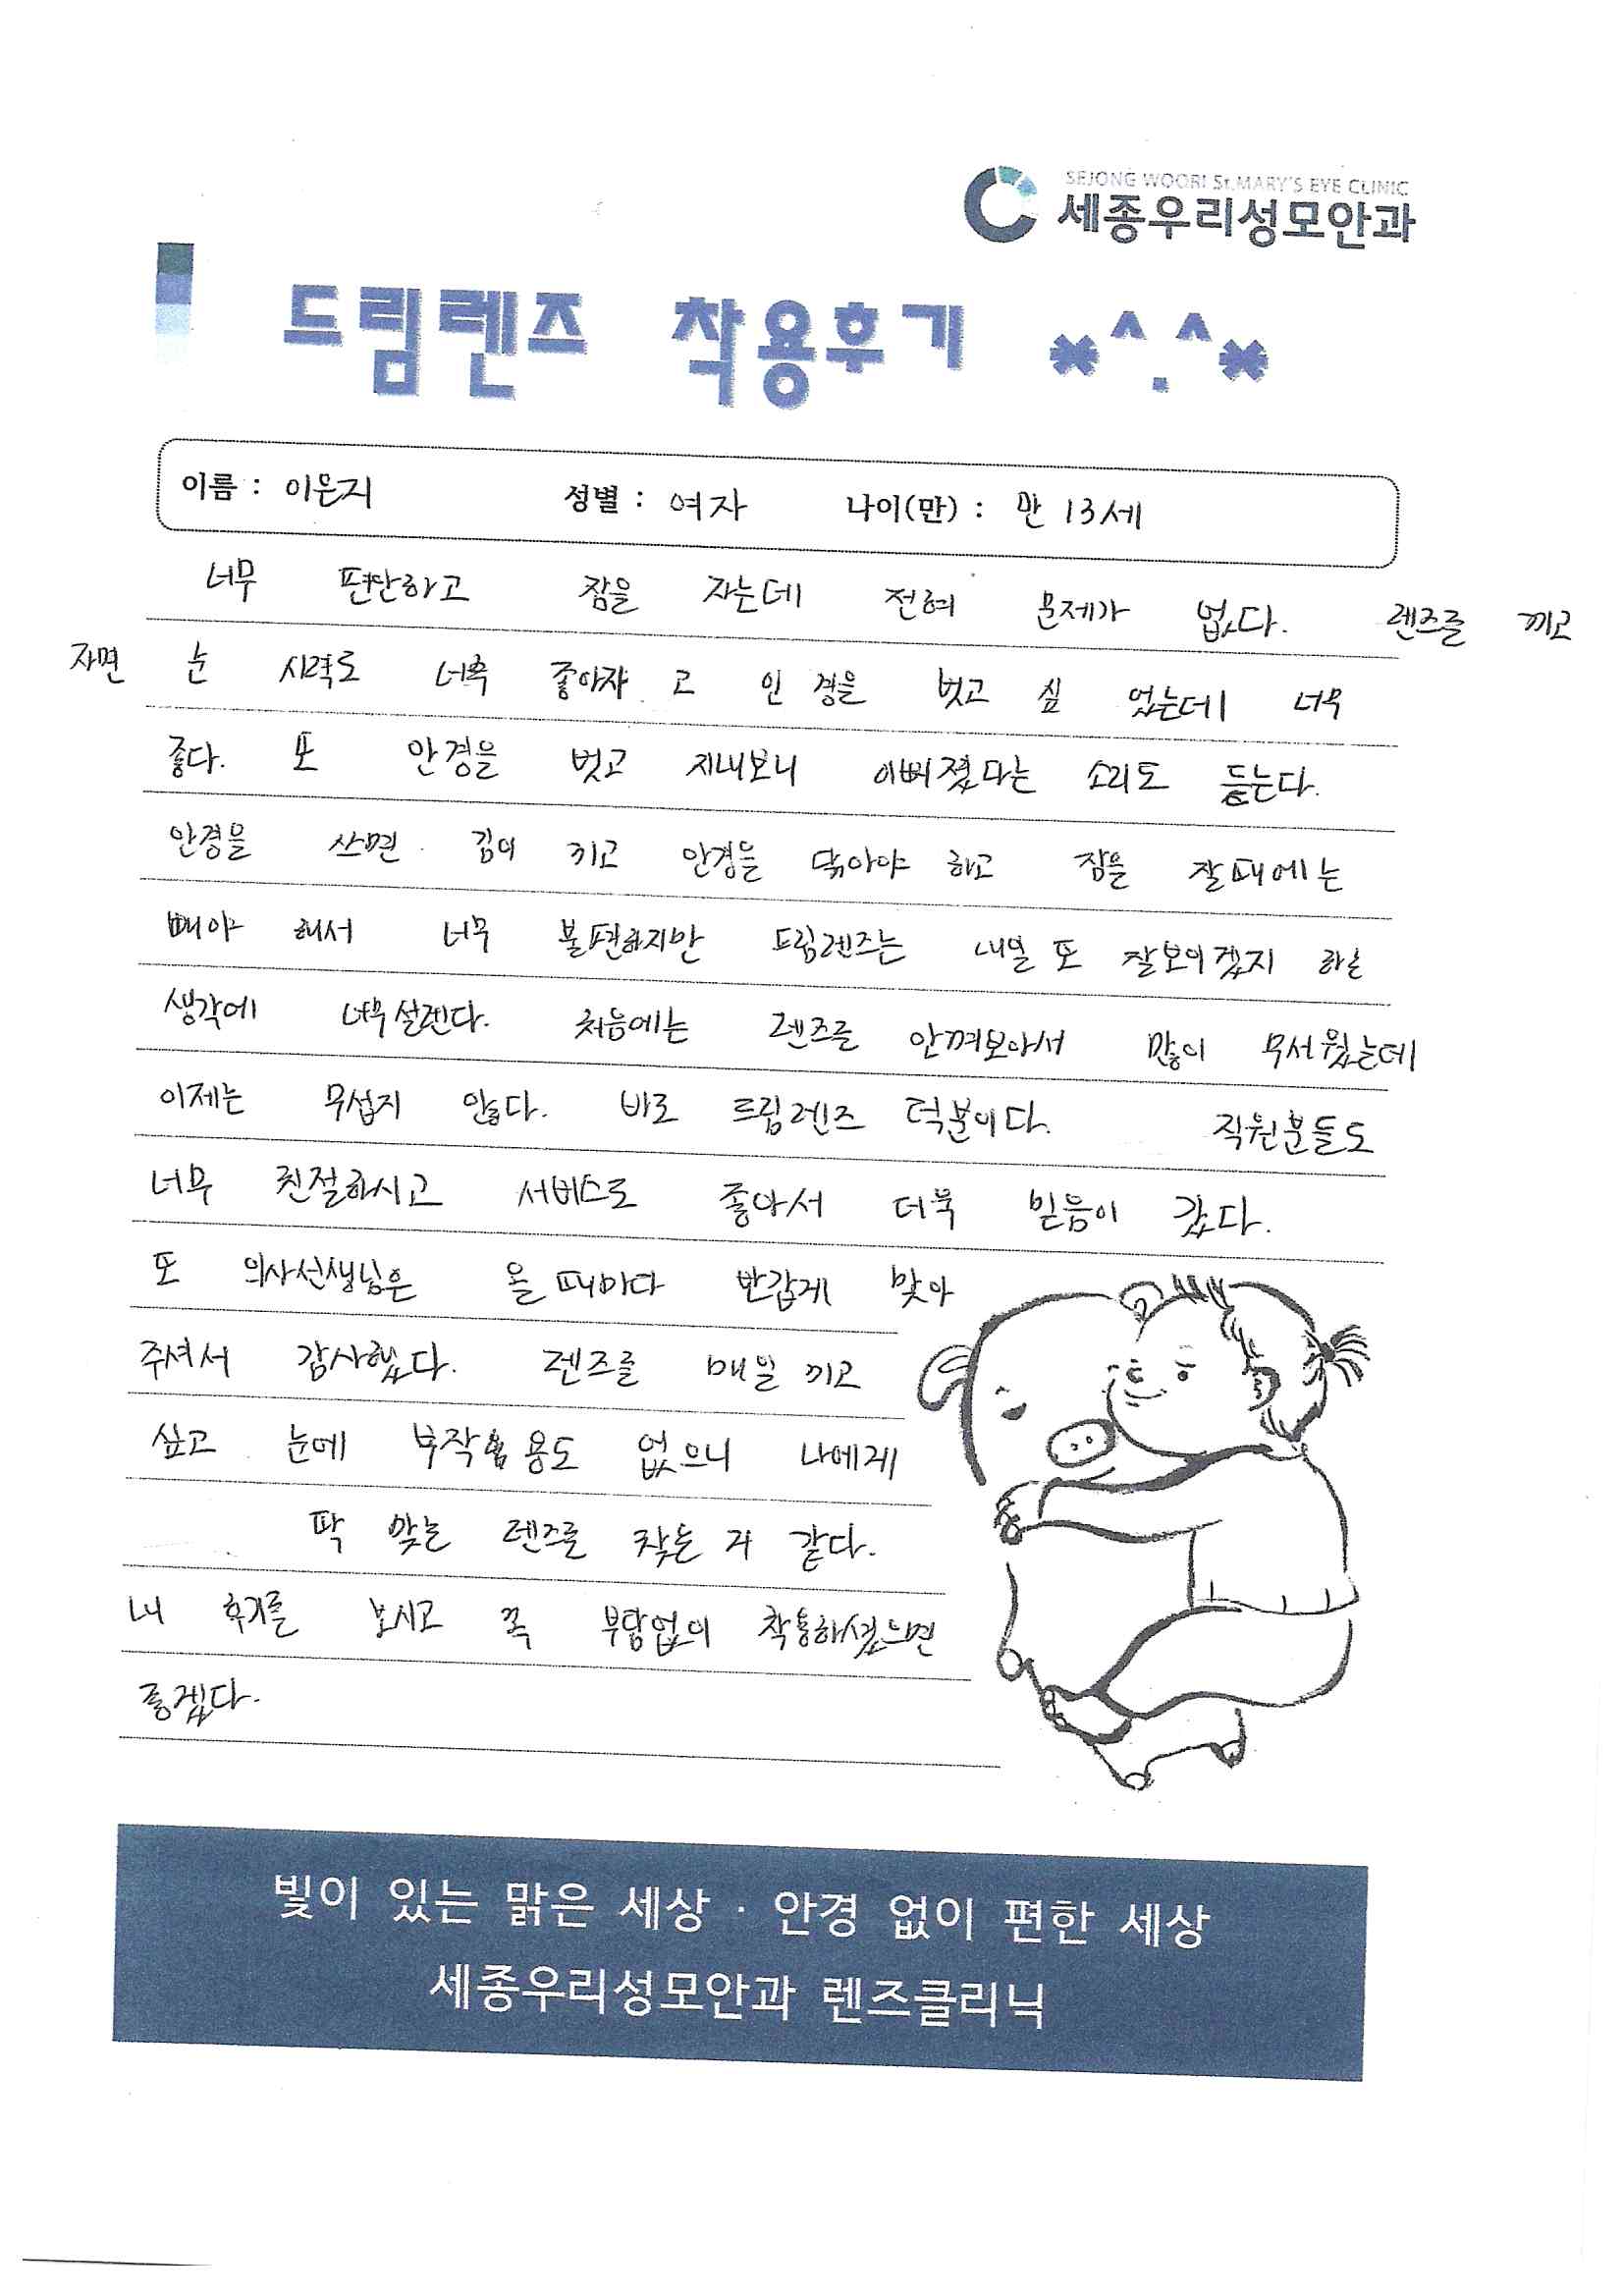 SEJONG WOORI St.MARY'S EYE CLINIC
세종우리성모안과
드림렌즈 착용후기 *^.^*
이름 : 이은지 성별 : 여자 나이(만) : 만 13세
너무 편안하고 잠을 자는데 전혀 문제가 없다. 렌즈를 끼고
자면 눈 시력도 너무 좋아지고 안경을 벗고 싶었는데 너무
좋다. 또 안경을 벗고 지내보니 이뻐졌다는 소리도 듣는다.
안경을 쓰면 김이 끼고 안경을 닦아야 하고 잠을 잘때에는
빼야 해서 너무 불편하지만 드림렌즈는 내일 또 잘보이겠지 하는
생각에 너무설렌다. 처음에는 렌즈를 안껴보아서 많이 무서웠는데
이제는 무섭지 않다. 바로 드림렌즈 덕분이다. 직원분들도
너무 친절하시고 서비스도 좋아서 더욱 믿음이 갔다.
또 의사선생님은 올때마다 반갑게 맞아
주셔서 감사했다. 렌즈를 매일 끼고
싶고 눈에 부작용도 없으니 나에게
딱 맞는 렌즈를 찾은 거 같다.
내 후기를 보시고 꼭 부담없이 착용하셨으면
좋겠다.
빛이 있는 맑은 세상 · 안경 없이 편한 세상
세종우리성모안과 렌즈클리닉